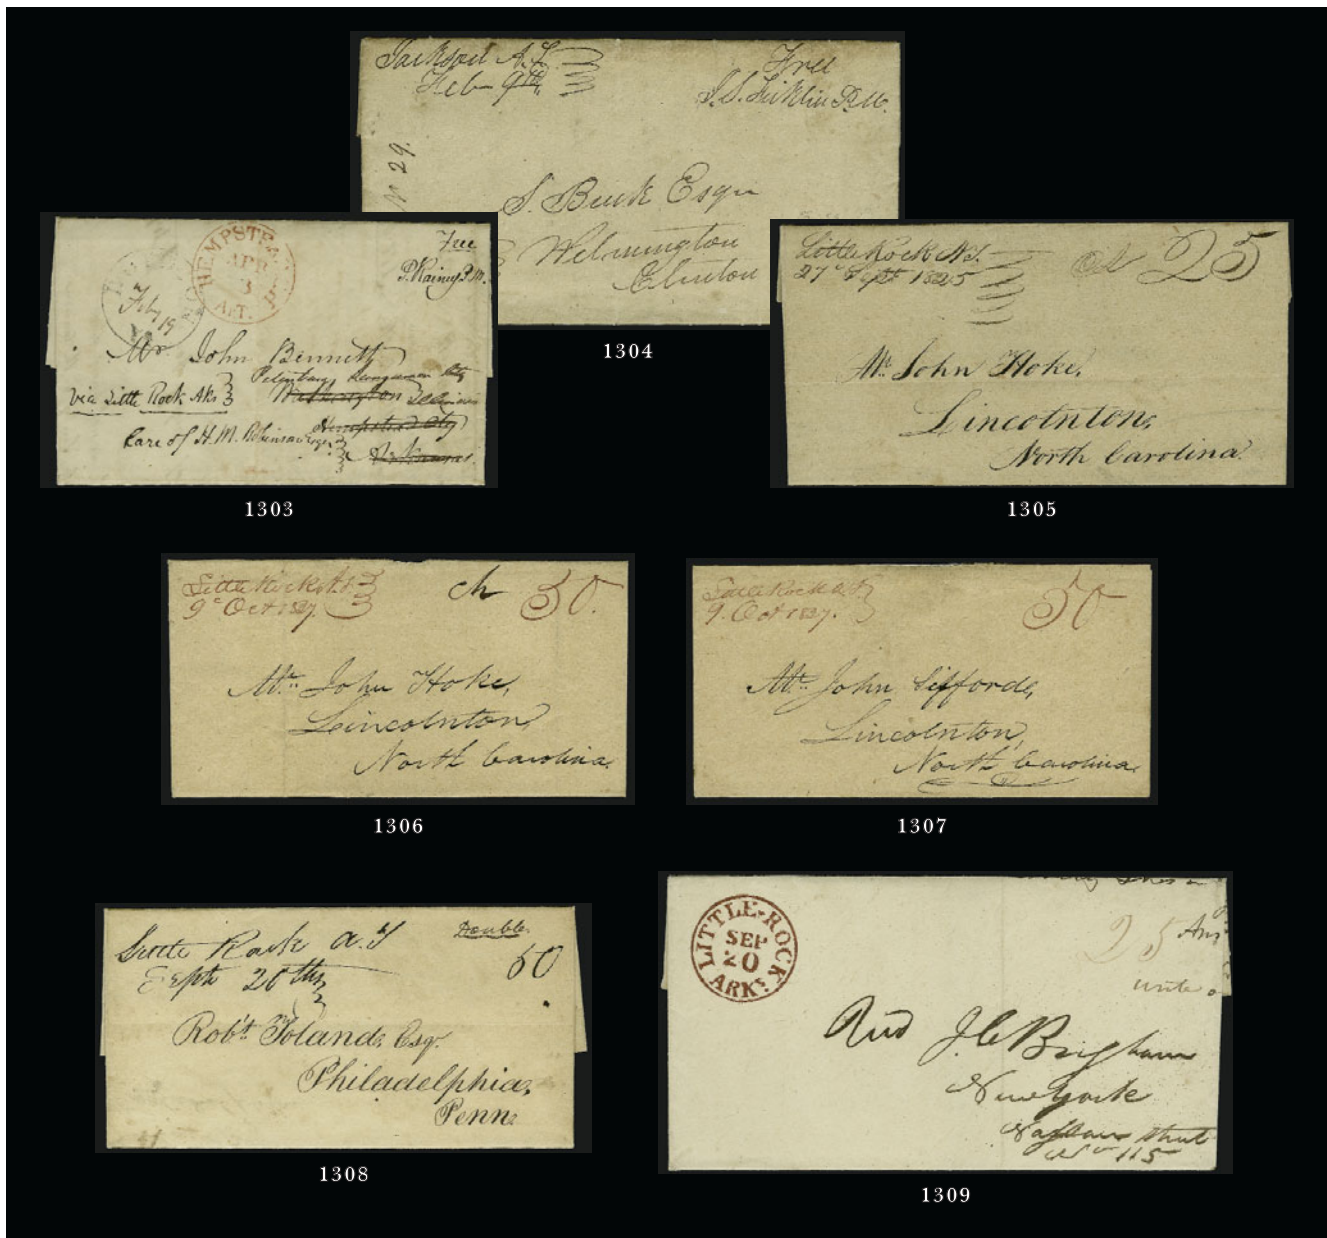 Jackson A.T.
Feb 9th
Free
P.M.
No 29.
S. Buck Esqr
Wilmington
Clinton
1304
HEMPSTEAD
APR
3
A.T.
Feby 19
Free
P. Rainey P.M.
Mr. John Bennett
Washington
Via Little Rock Aks
Hempstead Cty
Care of H.M. Robinson Esqr.
Arkansas
1303
Little Rock A.T.
27th Sept 1825
25
Mr. John Hoke,
Lincolnton,
North Carolina.
1305
Little Rock A.T.
9th Oct 1827.
ch 50.
Mr. John Hoke,
Lincolnton,
North Carolina.
1306
Little Rock A.T.
9. Oct 1827.
50
Mr. John Sifforde,
Lincolnton,
North Carolina.
1307
Little Rock A.T
Sepr 20th
Double
50
Robt. Toland, Esqr.
Philadelphia,
Penn.
1308
LITTLE-ROCK
SEP
20
ARKs.
25
Ans
write
Revd J.C. Brigham
New York
Nassau Street
No 115
1309